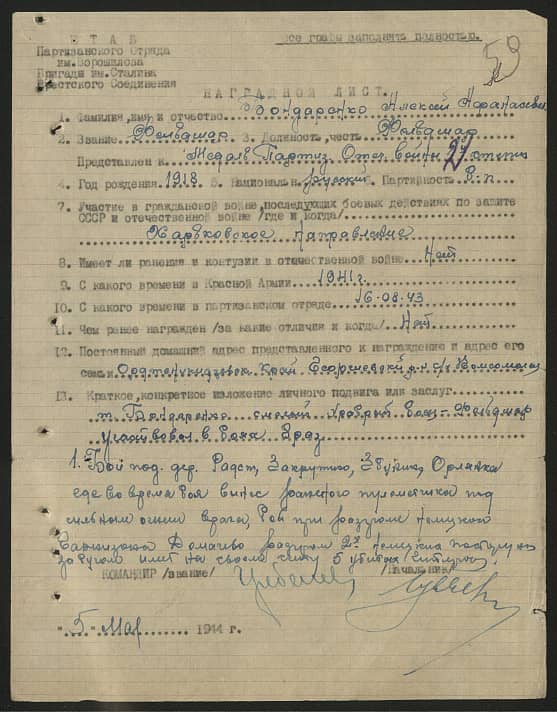 ШТАБ
Партизанского Отряда
им.Ворошилова
Бригады им.Сталина
Брестского Соединения
все графы заполнять полностью.
НАГРАДНОЙ ЛИСТ.
1. Фамилия,имя и отчество Бондаренко Алексей Афанасьевич
2. Звание Фельдшер 3. Должность,часть Фельдшер
Представлен к Медаль Партиз. Отеч. войны 2й степени
4. Год рождения 1918 5. Националь н. русский 6. Партийность б-п
7. Участие в гражданской войне,последующих боевых действиях по защите
СССР и отечественной войне /где и когда/
Харьковское направление
8. Имеет ли ранения и контузии в отечественной войне Нет
9. С какого времени в Красной Армии 1941 г.
10. С какого времени в партизанском отряде 16-08-43
11. Чем ранее награжден /за какие отличия и когда/ Нет
12. Постоянный домашний адрес представленного к награждению и адрес его
семьи Край р-н с/с
13. Краткое,конкретное изложение личного подвига или заслуг
т. Бондаренко смелый храбрый Фельдшер
участвовал в
1. Бой под. дер. Радст, Закрутин, Збунин, Орлянка
где во время боя вынес раненого пулеметчика под
сильным огнем врага, бой при разгроме немецкого
Гарнизона Домачево
имеет на своем счету 5 убитых
КОМАНДИР /звание/ Начальник
"5" Мая 1944 г.